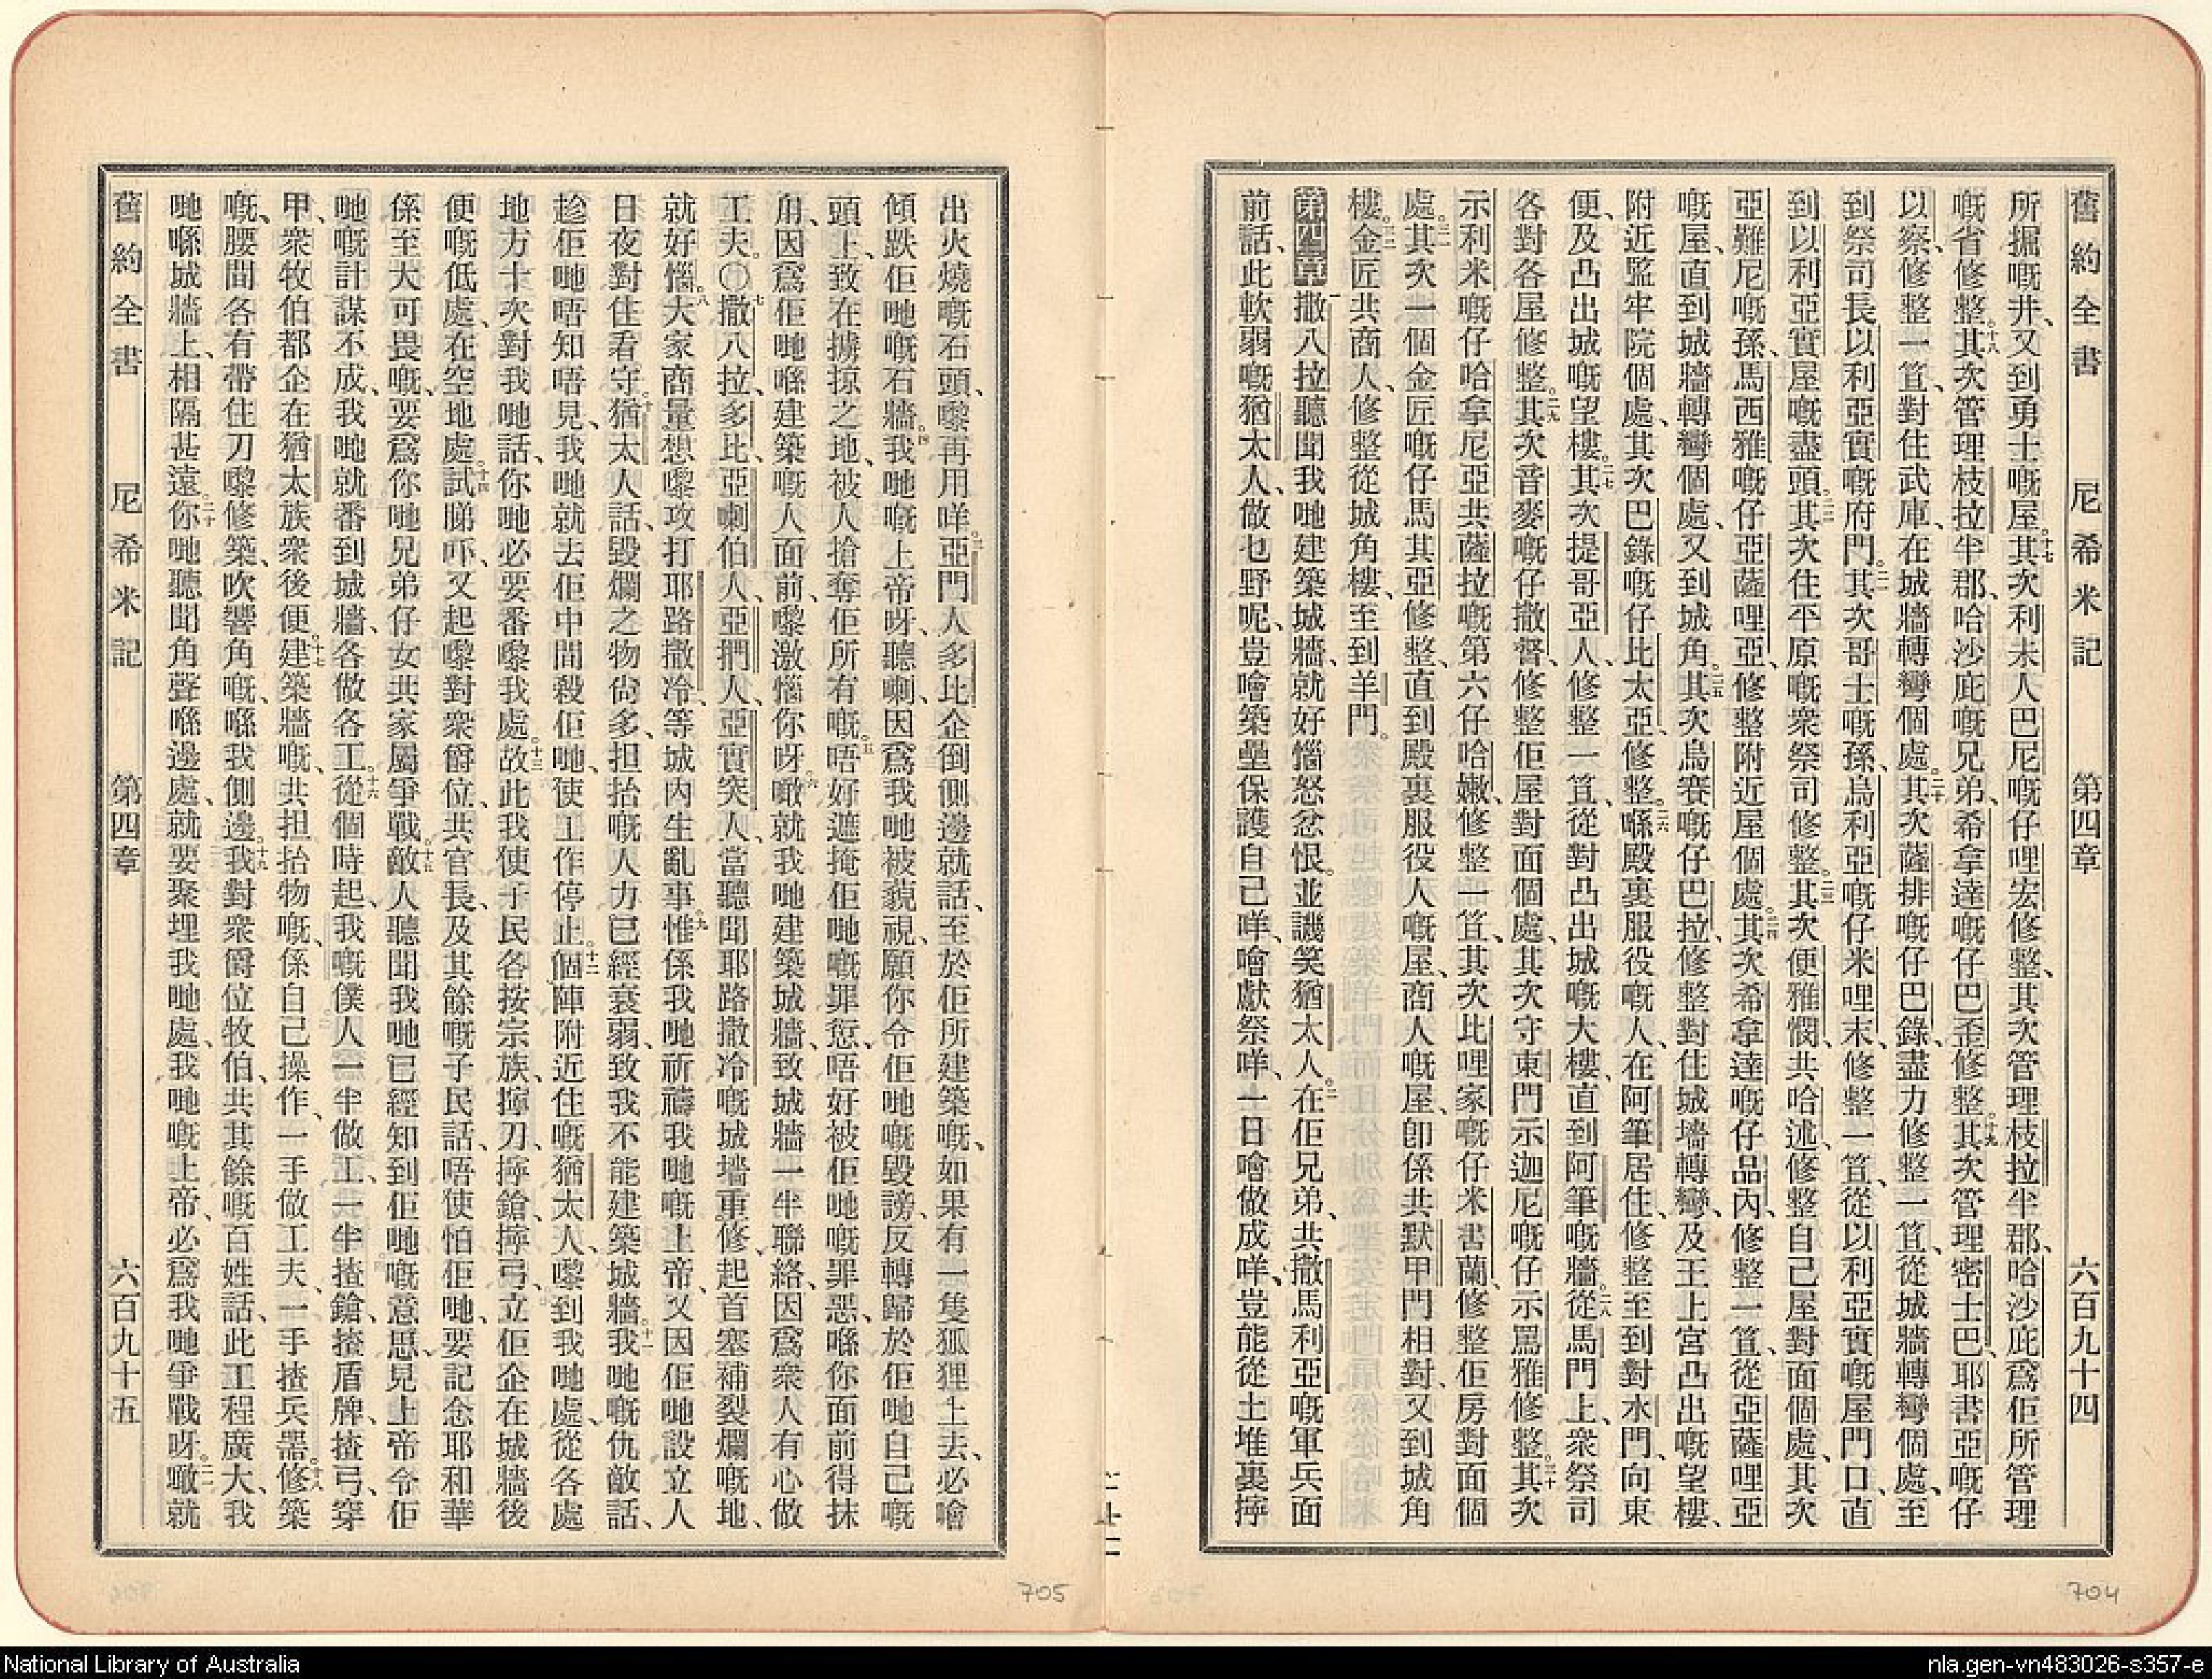 舊約全書　尼希米記　第四章　六百九十四
所掘嘅井、又到勇士嘅屋。十七其次利未人巴尼嘅仔哩宏修整、其次管理枝拉半郡、哈沙庇爲佢所管理
嘅省修整。十八其次管理枝拉半郡、哈沙庇嘅兄弟、希拿達嘅仔巴歪修整。十九其次管理密士巴、耶書亞嘅仔
以察、修整一笪、對住武庫、在城牆轉彎個處。二十其次薩排嘅仔巴錄、盡力修整一笪、從城牆轉彎個處、至
到祭司長以利亞實嘅府門。二一其次哥士嘅孫、烏利亞嘅仔米哩末、修整一笪、從以利亞實嘅屋門口、直
到以利亞實屋嘅盡頭。二二其次住平原嘅衆祭司修整。二三其次便雅憫、共哈述、修整自己屋對面個處、其次
亞難尼嘅孫、馬西雅嘅仔亞薩哩亞、修整附近屋個處。二四其次希拿達嘅仔品內、修整一笪、從亞薩哩亞
嘅屋、直到城牆轉彎個處、又到城角。二五其次烏賽嘅仔巴拉、修整對住城墻轉彎、及王上宮凸出嘅望樓、
附近監牢院個處、其次巴錄嘅仔比太亞、修整。二六喺殿裏服役嘅人、在阿筆居住、修整至到對水門、向東
便、及凸出城嘅望樓。二七其次提哥亞人、修整一笪、從對凸出城嘅大樓、直到阿筆嘅牆。二八從馬門上、衆祭司
各對各屋修整。二九其次音麥嘅仔撒督、修整佢屋對面個處、其次守東門示迦尼嘅仔示罵雅修整。三十其次
示利米嘅仔哈拿尼亞、共薩拉嘅第六仔哈嫩、修整一笪、其次比哩家嘅仔米書蘭、修整佢房對面個
處。三一其次一個金匠嘅仔馬其亞修整、直到殿裏服役人嘅屋、商人嘅屋、卽係共默甲門相對、又到城角
樓。三二金匠共商人、修整從城角樓、至到羊門。
第四章　一撒八拉聽聞我哋建築城牆、就好惱怒忿恨。並譏笑猶太人。二在佢兄弟、共撒馬利亞嘅軍兵面
前話、此軟弱嘅猶太人、做乜野呢、豈噲築壘保護自己咩、噲獻祭咩、一日噲做成咩、豈能從土堆裏擰
出火燒嘅石頭、嚟再用咩。三亞門人多比企倒側邊就話、至於佢所建築嘅、如果有一隻狐狸上去、必噲
傾跌佢哋嘅石牆。四我哋嘅上帝呀、聽喇、因爲我哋被藐視、願你令佢哋嘅毀謗、反轉歸於佢哋自己嘅
頭上、致在擄掠之地、被人搶奪佢所有嘅。五唔好遮掩佢哋嘅罪愆、唔好被佢哋嘅罪惡、喺你面前得抹
用、因爲佢哋喺建築嘅人面前、嚟激惱你呀。六噉就我哋建築城牆、致城牆一半聯絡、因爲衆人有心做
工夫。〇七撒八拉、多比、亞喇伯人、亞捫人、亞實突人、當聽聞耶路撒冷嘅城墻重修、起首塞補裂爛嘅地、
就好惱。八大家商量想嚟攻打耶路撒冷、等城內生亂事。九惟係我哋祈禱我哋嘅上帝、又因佢哋設立人
日夜對住看守。十猶太人話、毀爛之物尙多、担抬嘅人力已經衰弱、致我不能建築城牆。十一我哋嘅仇敵話、
趁佢哋唔知唔見、我哋就去佢中間殺佢哋、使工作停止。十二個陣附近住嘅猶太人、嚟到我哋處、從各處
地方十次對我哋話、你哋必要番嚟我處。十三故此我使子民各按宗族、擰刀、擰鎗、擰弓、立佢企在城牆後
便嘅低處、在空地處。十四試睇吓、又起嚟對衆爵位、共官長、及其餘嘅子民話、唔使怕佢哋、要記念耶和華
係至大可畏嘅、要爲你哋兄弟仔女共家屬爭戰。十五敵人聽聞我哋已經知到佢哋嘅意思、見上帝令佢
哋嘅計謀不成、我哋就番到城牆、各做各工。十六從個時起、我嘅僕人一半做工、一半揸鎗、揸盾牌、揸弓、穿
甲、衆牧伯都企在猶太族衆後便。十七建築牆嘅、共担抬物嘅、係自己操作、一手做工夫、一手揸兵器。十八修築
嘅、腰間各有帶住刀嚟修築、吹響角嘅、喺我側邊。十九我對衆爵位牧伯、共其餘嘅百姓話、此工程廣大、我
哋喺城牆上、相隔甚遠。二十你哋聽聞角聲喺邊處、就要聚埋我哋處、我哋嘅上帝、必爲我哋爭戰呀。二一噉就
舊約全書　尼希米記　第四章　六百九十五
705
704
National Library of Australia
nla.gen-vn483026-s357-e